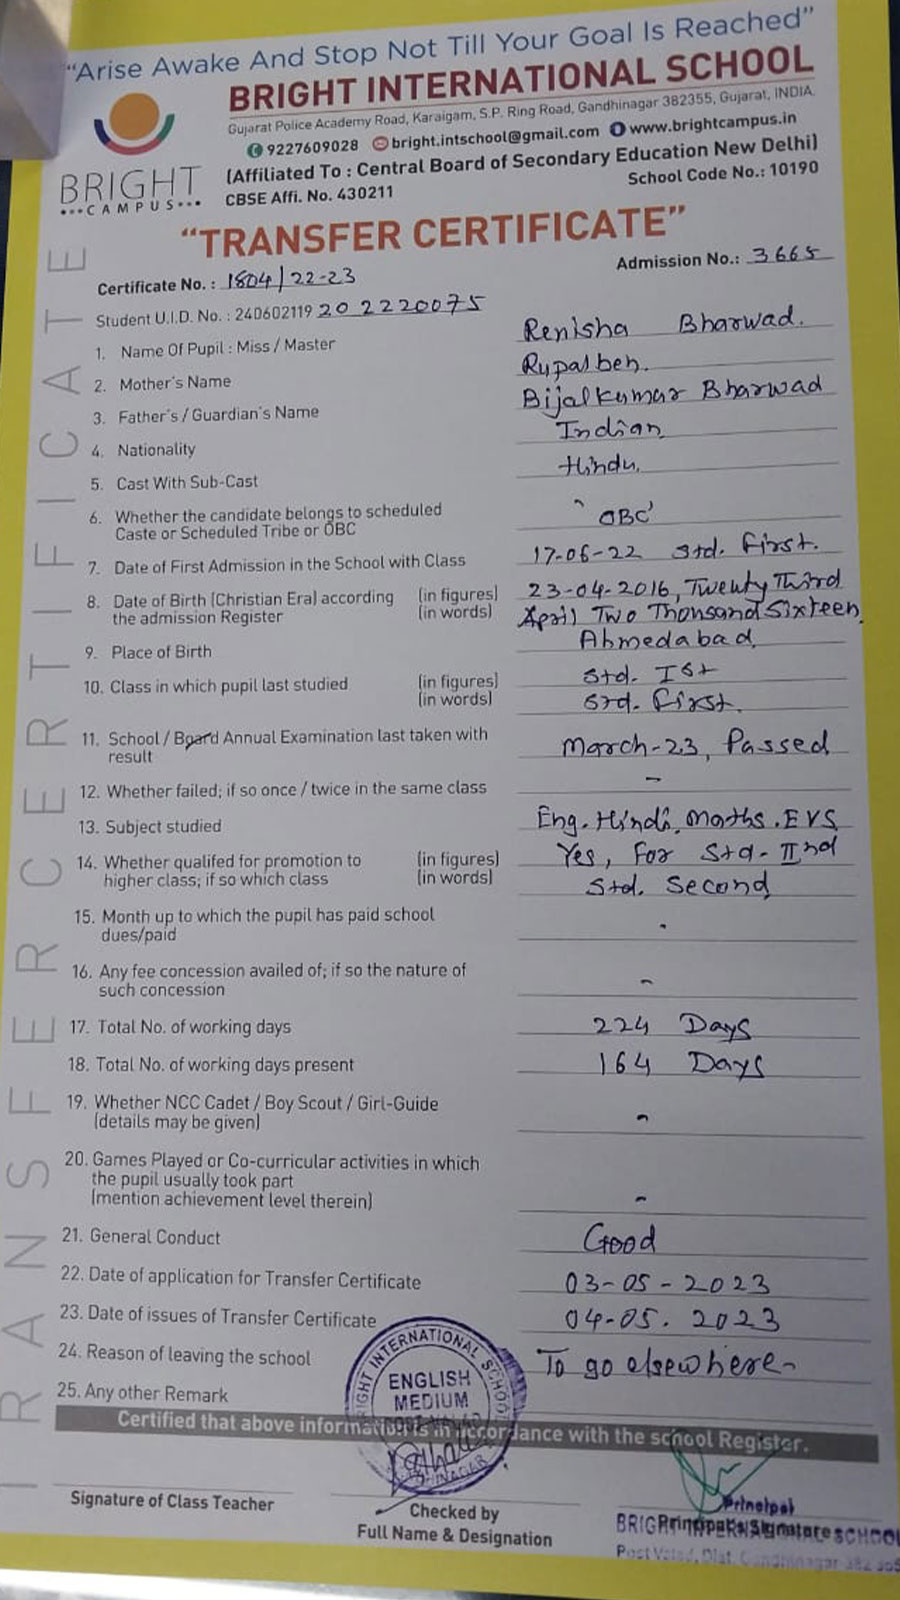 “Arise Awake And Stop Not Till Your Goal Is Reached”
BRIGHT INTERNATIONAL SCHOOL
Gujarat Police Academy Road, Karaigam, S.P. Ring Road, Gandhinagar 382355, Gujarat, INDIA.
9227609028 bright.intschool@gmail.com www.brightcampus.in
(Affiliated To : Central Board of Secondary Education New Delhi)
BRIGHT
CAMPUS
CBSE Affi. No. 430211 School Code No.: 10190
“TRANSFER CERTIFICATE”
TRANSFER CERTIFICATE
Certificate No. : 1804/22-23 Admission No.: 3665
Student U.I.D. No. : 240602119 20 2220075
1. Name Of Pupil : Miss / Master Renisha Bharwad.
2. Mother's Name Rupalben.
3. Father's / Guardian's Name Bijalkumar Bharwad
4. Nationality Indian
5. Cast With Sub-Cast Hindu.
6. Whether the candidate belongs to scheduled
Caste or Scheduled Tribe or OBC ‘OBC’
7. Date of First Admission in the School with Class 17-06-22 Std. First.
8. Date of Birth (Christian Era) according (in figures) 23-04-2016, Twenty Third
the admission Register (in words) April Two Thousand Sixteen
9. Place of Birth Ahmedabad
10. Class in which pupil last studied (in figures) Std. Ist
(in words) Std. First.
11. School / Board Annual Examination last taken with
result March-23, Passed
12. Whether failed; if so once / twice in the same class -
13. Subject studied Eng. Hindi, Maths. EVS
14. Whether qualifed for promotion to (in figures) Yes, For Std- IInd
higher class; if so which class (in words) Std. Second
15. Month up to which the pupil has paid school
dues/paid -
16. Any fee concession availed of; if so the nature of
such concession -
17. Total No. of working days 224 Days
18. Total No. of working days present 164 Days
19. Whether NCC Cadet / Boy Scout / Girl-Guide
(details may be given) -
20. Games Played or Co-curricular activities in which
the pupil usually took part
(mention achievement level therein) -
21. General Conduct Good
22. Date of application for Transfer Certificate 03-05-2023
23. Date of issues of Transfer Certificate 04-05.2023
24. Reason of leaving the school To go elsewhere-
25. Any other Remark
BRIGHT INTERNATIONAL SCHOOL
ENGLISH
MEDIUM
Certified that above information is in accordance with the school Register.
Signature of Class Teacher
Checked by
Full Name & Designation
Principal
Principal's Signature
BRIGHT INTERNATIONAL SCHOOL